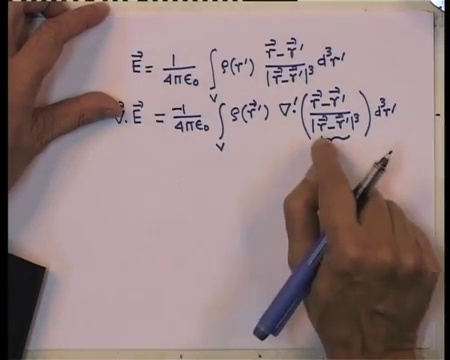 \vec{E} = \frac{1}{4\pi\epsilon_0} \int_V \rho(r') \frac{\vec{r}-\vec{r}'}{|\vec{r}-\vec{r}'|^3} d^3r'
\vec{\nabla}\cdot\vec{E} = \frac{-1}{4\pi\epsilon_0} \int_V \rho(\vec{r}') \nabla'\cdot\left(\frac{\vec{r}-\vec{r}'}{|\vec{r}-\vec{r}'|^3}\right) d^3r'